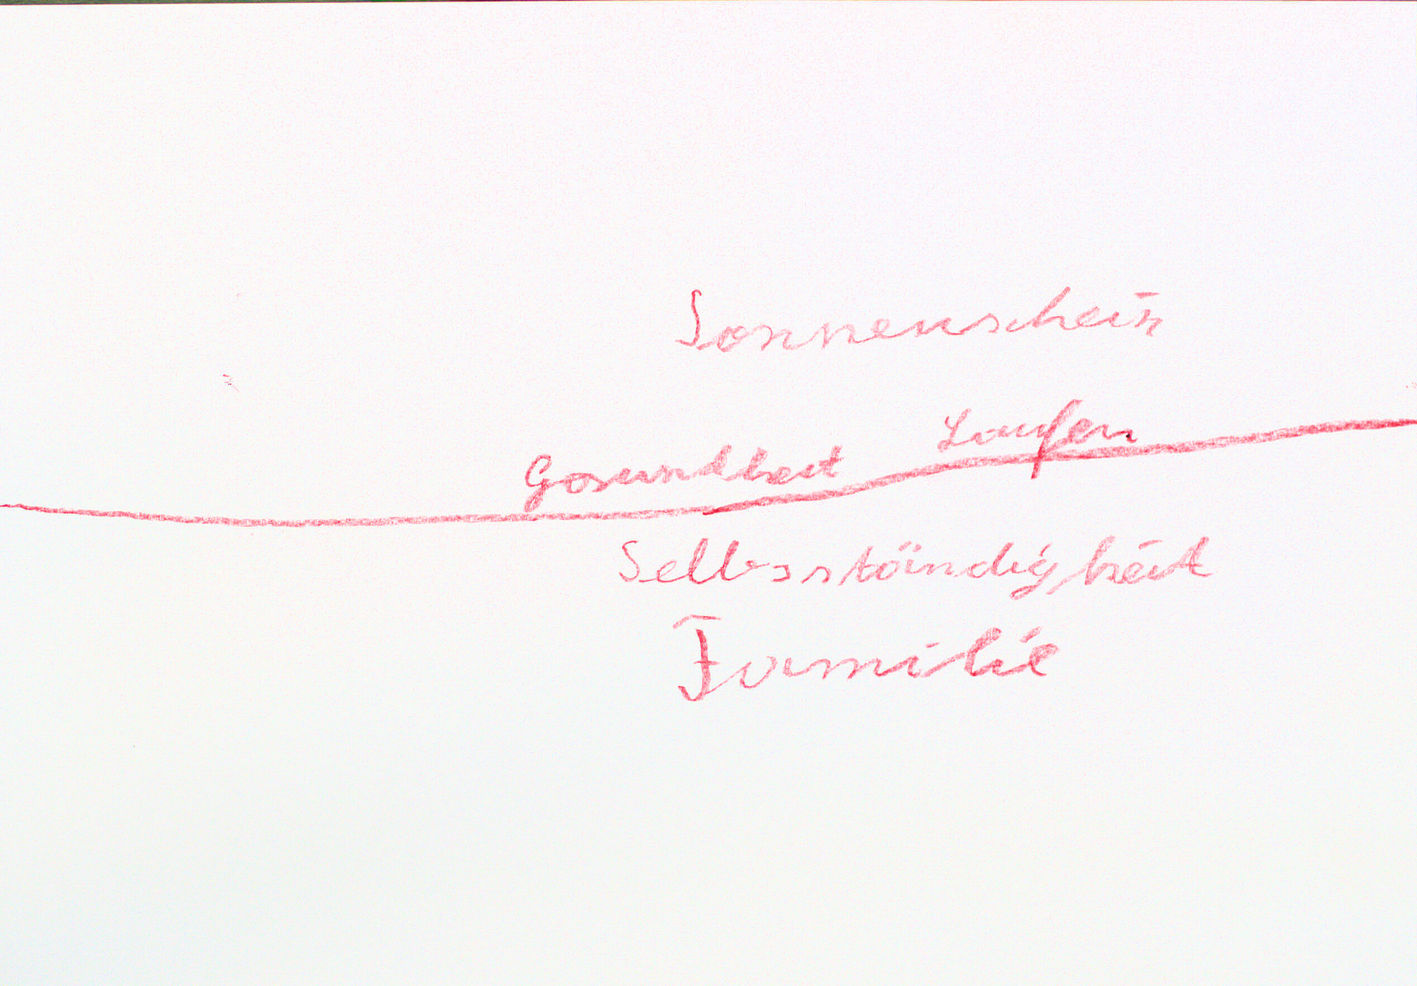 Sonnenschein
Laufen
Gesundheit
Selbsständigkeit
Familie